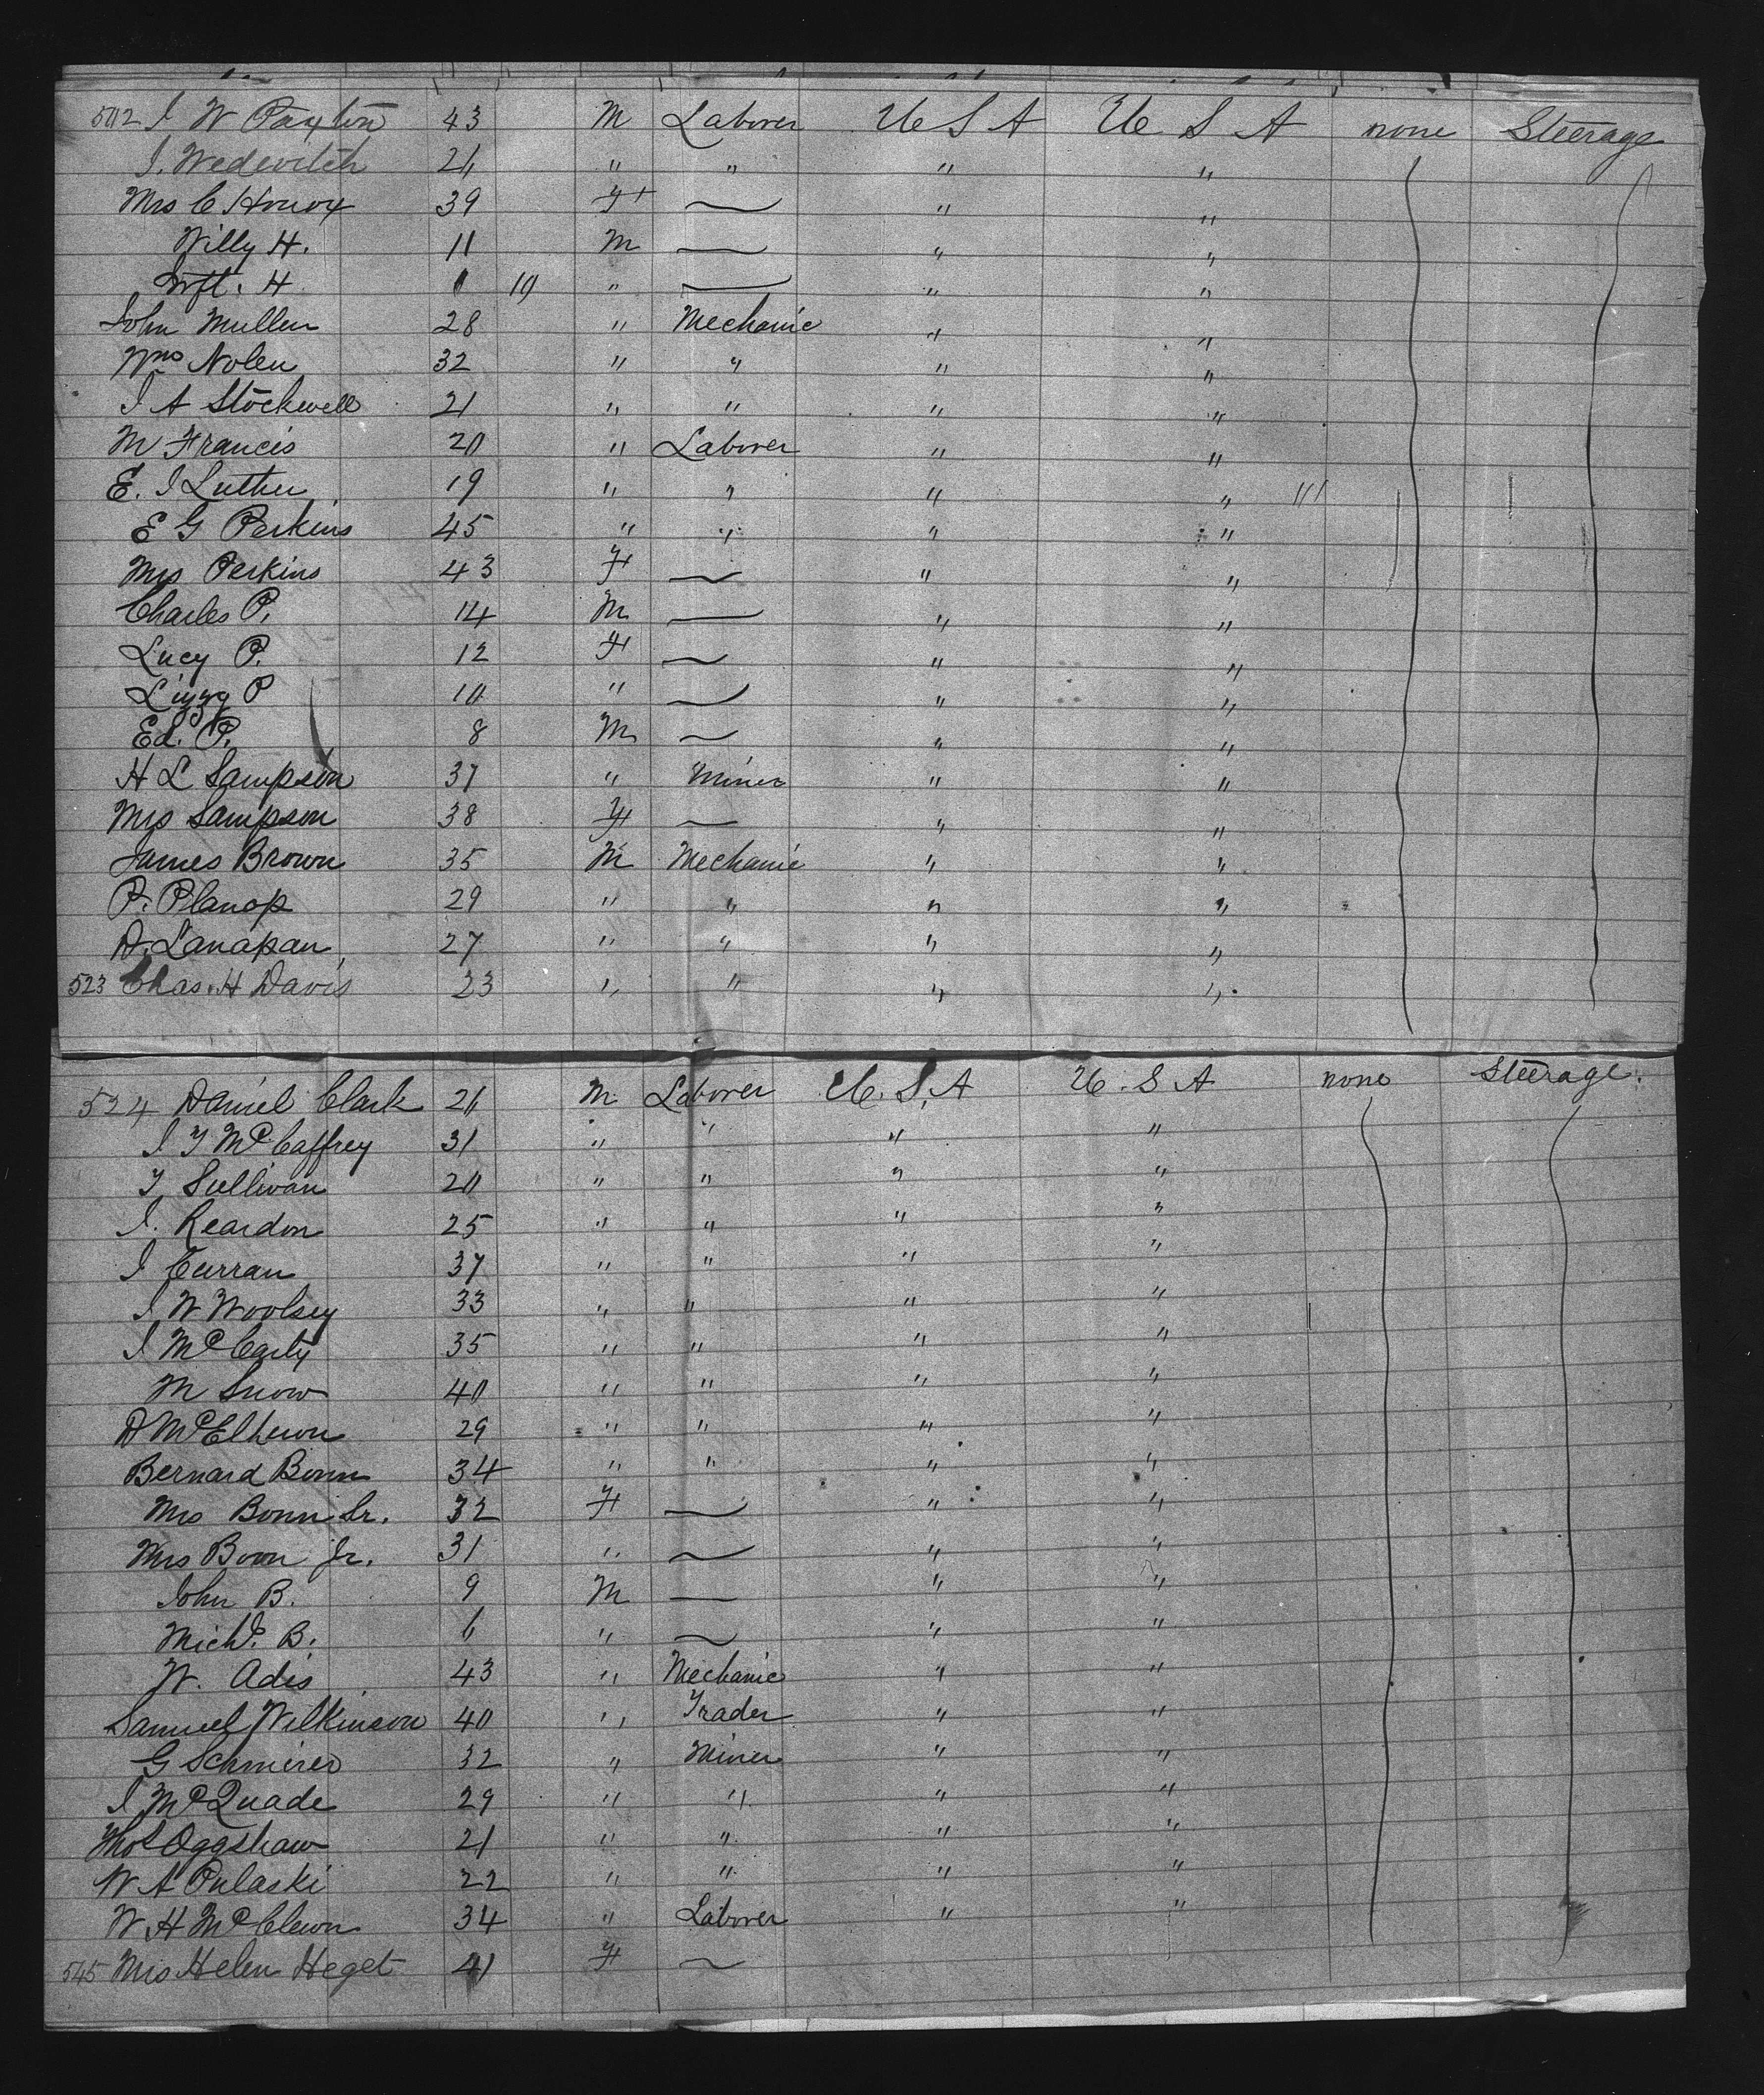 502 I W Paxton 43 M Laborer U S A U S A none Steerage
I. Wedevitch 21 " " " "
Mrs C 39 F — " "
Willy H. 11 M — " "
Inft. H 10 " — " "
John Mullen 28 " Mechanic " "
Wm Nolen 32 " " " "
I A Stockwell 21 " " " "
M Francis 20 " Laborer " "
E. I Luther 19 " " " "
E G Perkins 45 " " " "
Mrs Perkins 43 F — " "
Charles P. 14 M — " "
Lucy P. 12 F — " "
Lizzy P 10 " — " "
Ed. P. 8 M — " "
H L Sampson 37 " Miner " "
Mrs Sampson 38 F — " "
James Brown 35 M Mechanic " "
P. Planop 29 " " " "
D. Lanapan 27 " " " "
523 Chas. H Davis 23 " " " "
524 Daniel Clark 21 M Laborer U. S. A U. S A none Steerage.
I T McCaffrey 31 " " " "
T Sullivan 20 " " " "
I. Reardon 25 " " " "
I Curran 37 " " " "
I. W Woolsey 33 " " " "
I McCarty 35 " " " "
M Snow 40 " " " "
D McElhewn 29 " " " "
Bernard Bonn 34 " " " "
Mrs Bonn Sr. 32 F — " "
Mrs Bonn Jr. 31 " — " "
John B. 9 M — " "
Michl. B. 6 " — " "
W. Adis 43 " Mechanic " "
Samuel Wilkinson 40 " Trader " "
G Schmirer 32 " Miner " "
I McQuade 29 " " " "
Thos Oggshaw 21 " " " "
W A Pulaski 22 " " " "
W. H McClewn 34 " Laborer " "
545 Mrs Helen Heget 41 F —